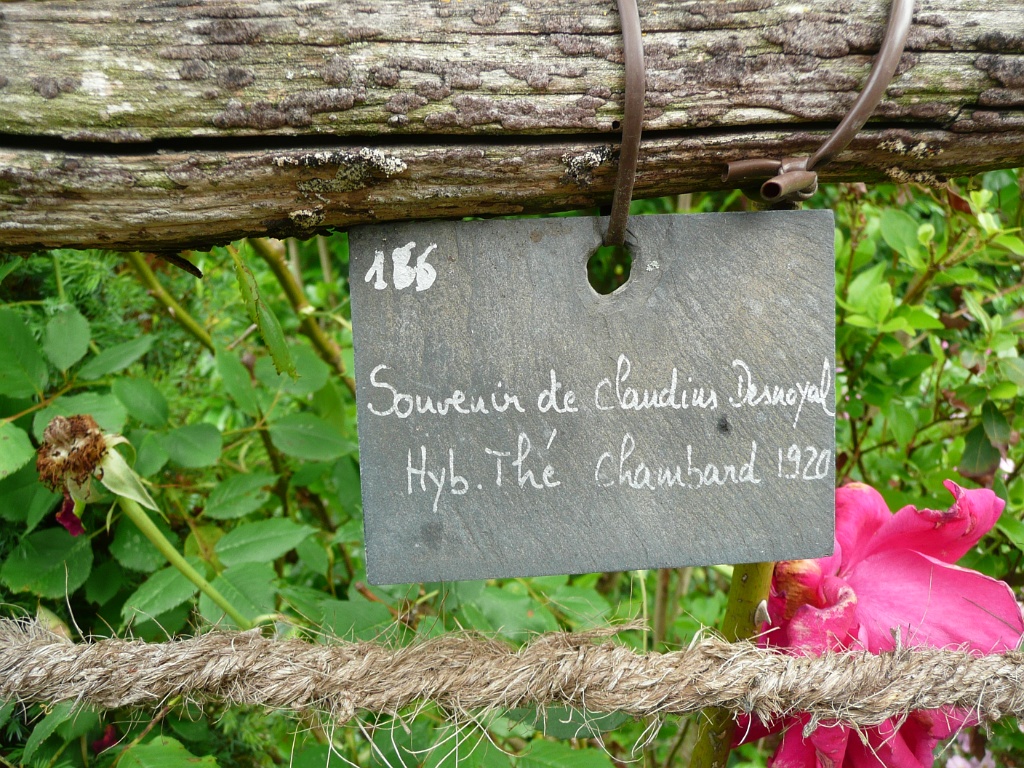 186
Souvenir de Claudius Desnoyal
Hyb. Thé Chambard 1920